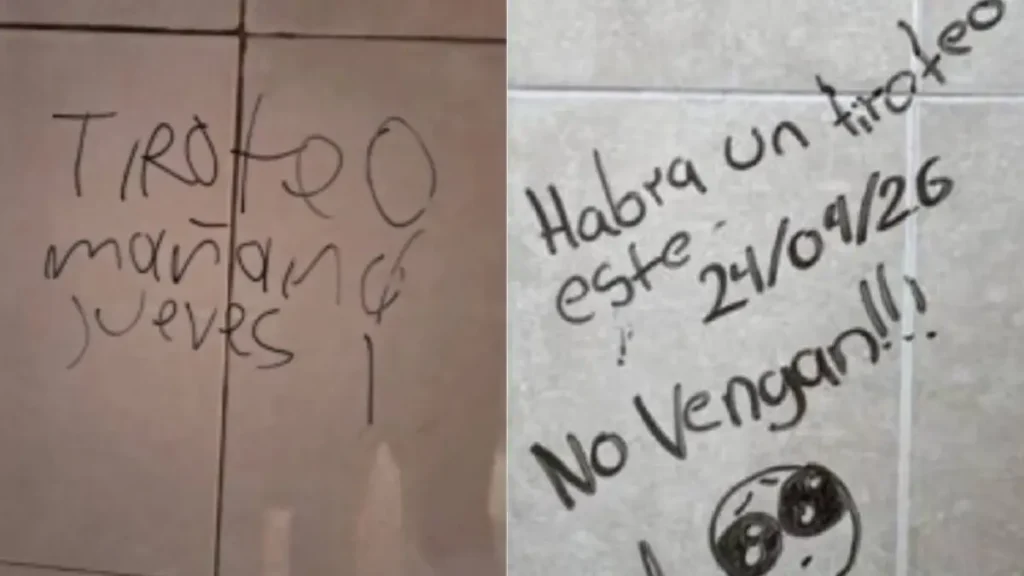 TIROteO
mañana
jueves !
Habra un tiroteo
este 24/09/26
No Vengan!!!